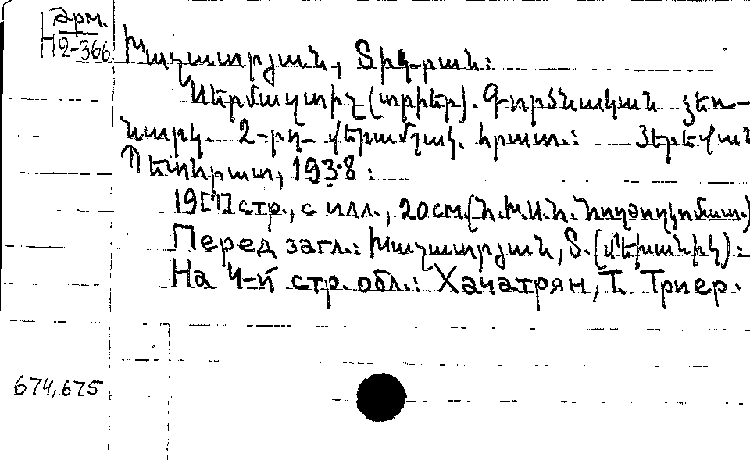 Арм.
Н2-366
Խաչատրյան, Տիգրան:
Սերմազտիչ (տրիեր). Գործնական ձեռ-
նարկ. 2-րդ վերամշակ. հրատ.: Յերեվան
Պետհրատ, 1938:
19[1] стр., с илл., 20 см. (Հ.Խ.Ս.Հ. Հողժողկոմատ.)
Перед загл.: Խաչատրյան, Տ. (մեխանիկ):
На 4-й стр. обл.: Хачатрян, Т. Триер.
674,675